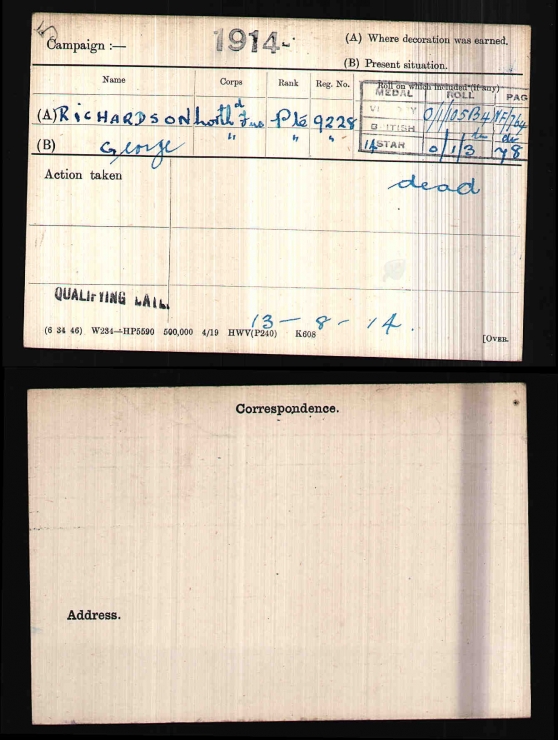 Campaign :— 1914- (A) Where decoration was earned.
(B) Present situation.
Name Corps Rank Reg. No. Roll on which included (if any)
MEDAL ROLL PAG
(A) RICHARDSON North'd Fus Pte 9228 O/1/105B4
BRITISH " "
(B) George " " " 14 STAR 78
Action taken dead
QUALIFYING DATE.
13 - 8 - 14.
(6 34 46) W234—HP5590 500,000 4/19 HWV(P240) K608 [OVER.
Correspondence.
Address.